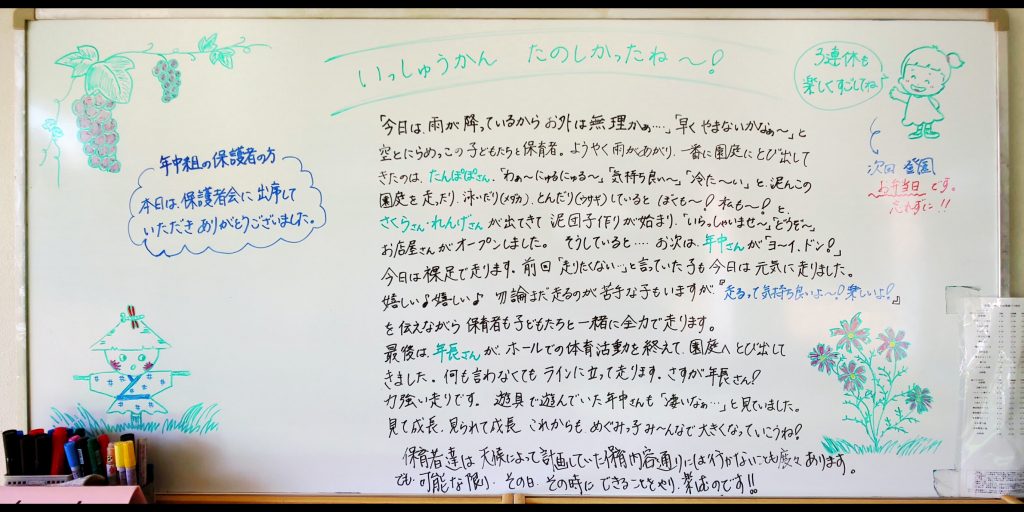 いっしゅうかん たのしかったね～!
3連休も
楽しくすごしてね♪
次回 登園
お弁当日です。
忘れずに!!
年中組の保護者の方
本日は、保護者会に出席して
いただきありがとうございました。
「今日は、雨が降っているからお外は無理かぁ…」「早くやまないかなぁ～」と
空とにらめっこの子どもたちと保育者。ようやく雨があがり、一番に園庭にとび出して
きたのは、たんぽぽさん。「わぁ～にゅるにゅる～」「気持ち良い～」「冷た～い」と、泥んこの
園庭を走ったり、泳いだり(メダカ)、とんだり(ウサギ)していると ぼくも～!私も～!と、
さくらさん・れんげさんが出てきて 泥団子作りが始まり、「いらっしゃいませ～」「どうぞ～」
お店屋さんがオープンしました。 そうしていると…. お次は、年中さんが「ヨーイ、ドン!」
今日は裸足で走ります。前回「走りたくない…」と言っていた子も今日は元気に走りました。
嬉しい♪嬉しい♪ 勿論まだ走るのが苦手な子もいますが、『走るって気持ち良いよ～!楽しいよ!』
を伝えながら 保育者も子どもたちと一緒に全力で走ります。
最後は、年長さんが、ホールでの体育活動を終えて、園庭へとび出して
きました。何も言わなくても ラインに立って走ります。さすが年長さん!
力強い走りです。 遊具で遊んでいた年中さんも「凄いなぁ…」と見ていました。
見て成長、見られて成長、これからも めぐみっ子み～んなで大きくなっていこうね!
保育者達は 天候によって計画していた保育内容通りには行かないことも度々あります。
でも、可能な限り、その日、その時にできることをやり、楽しむのです!!